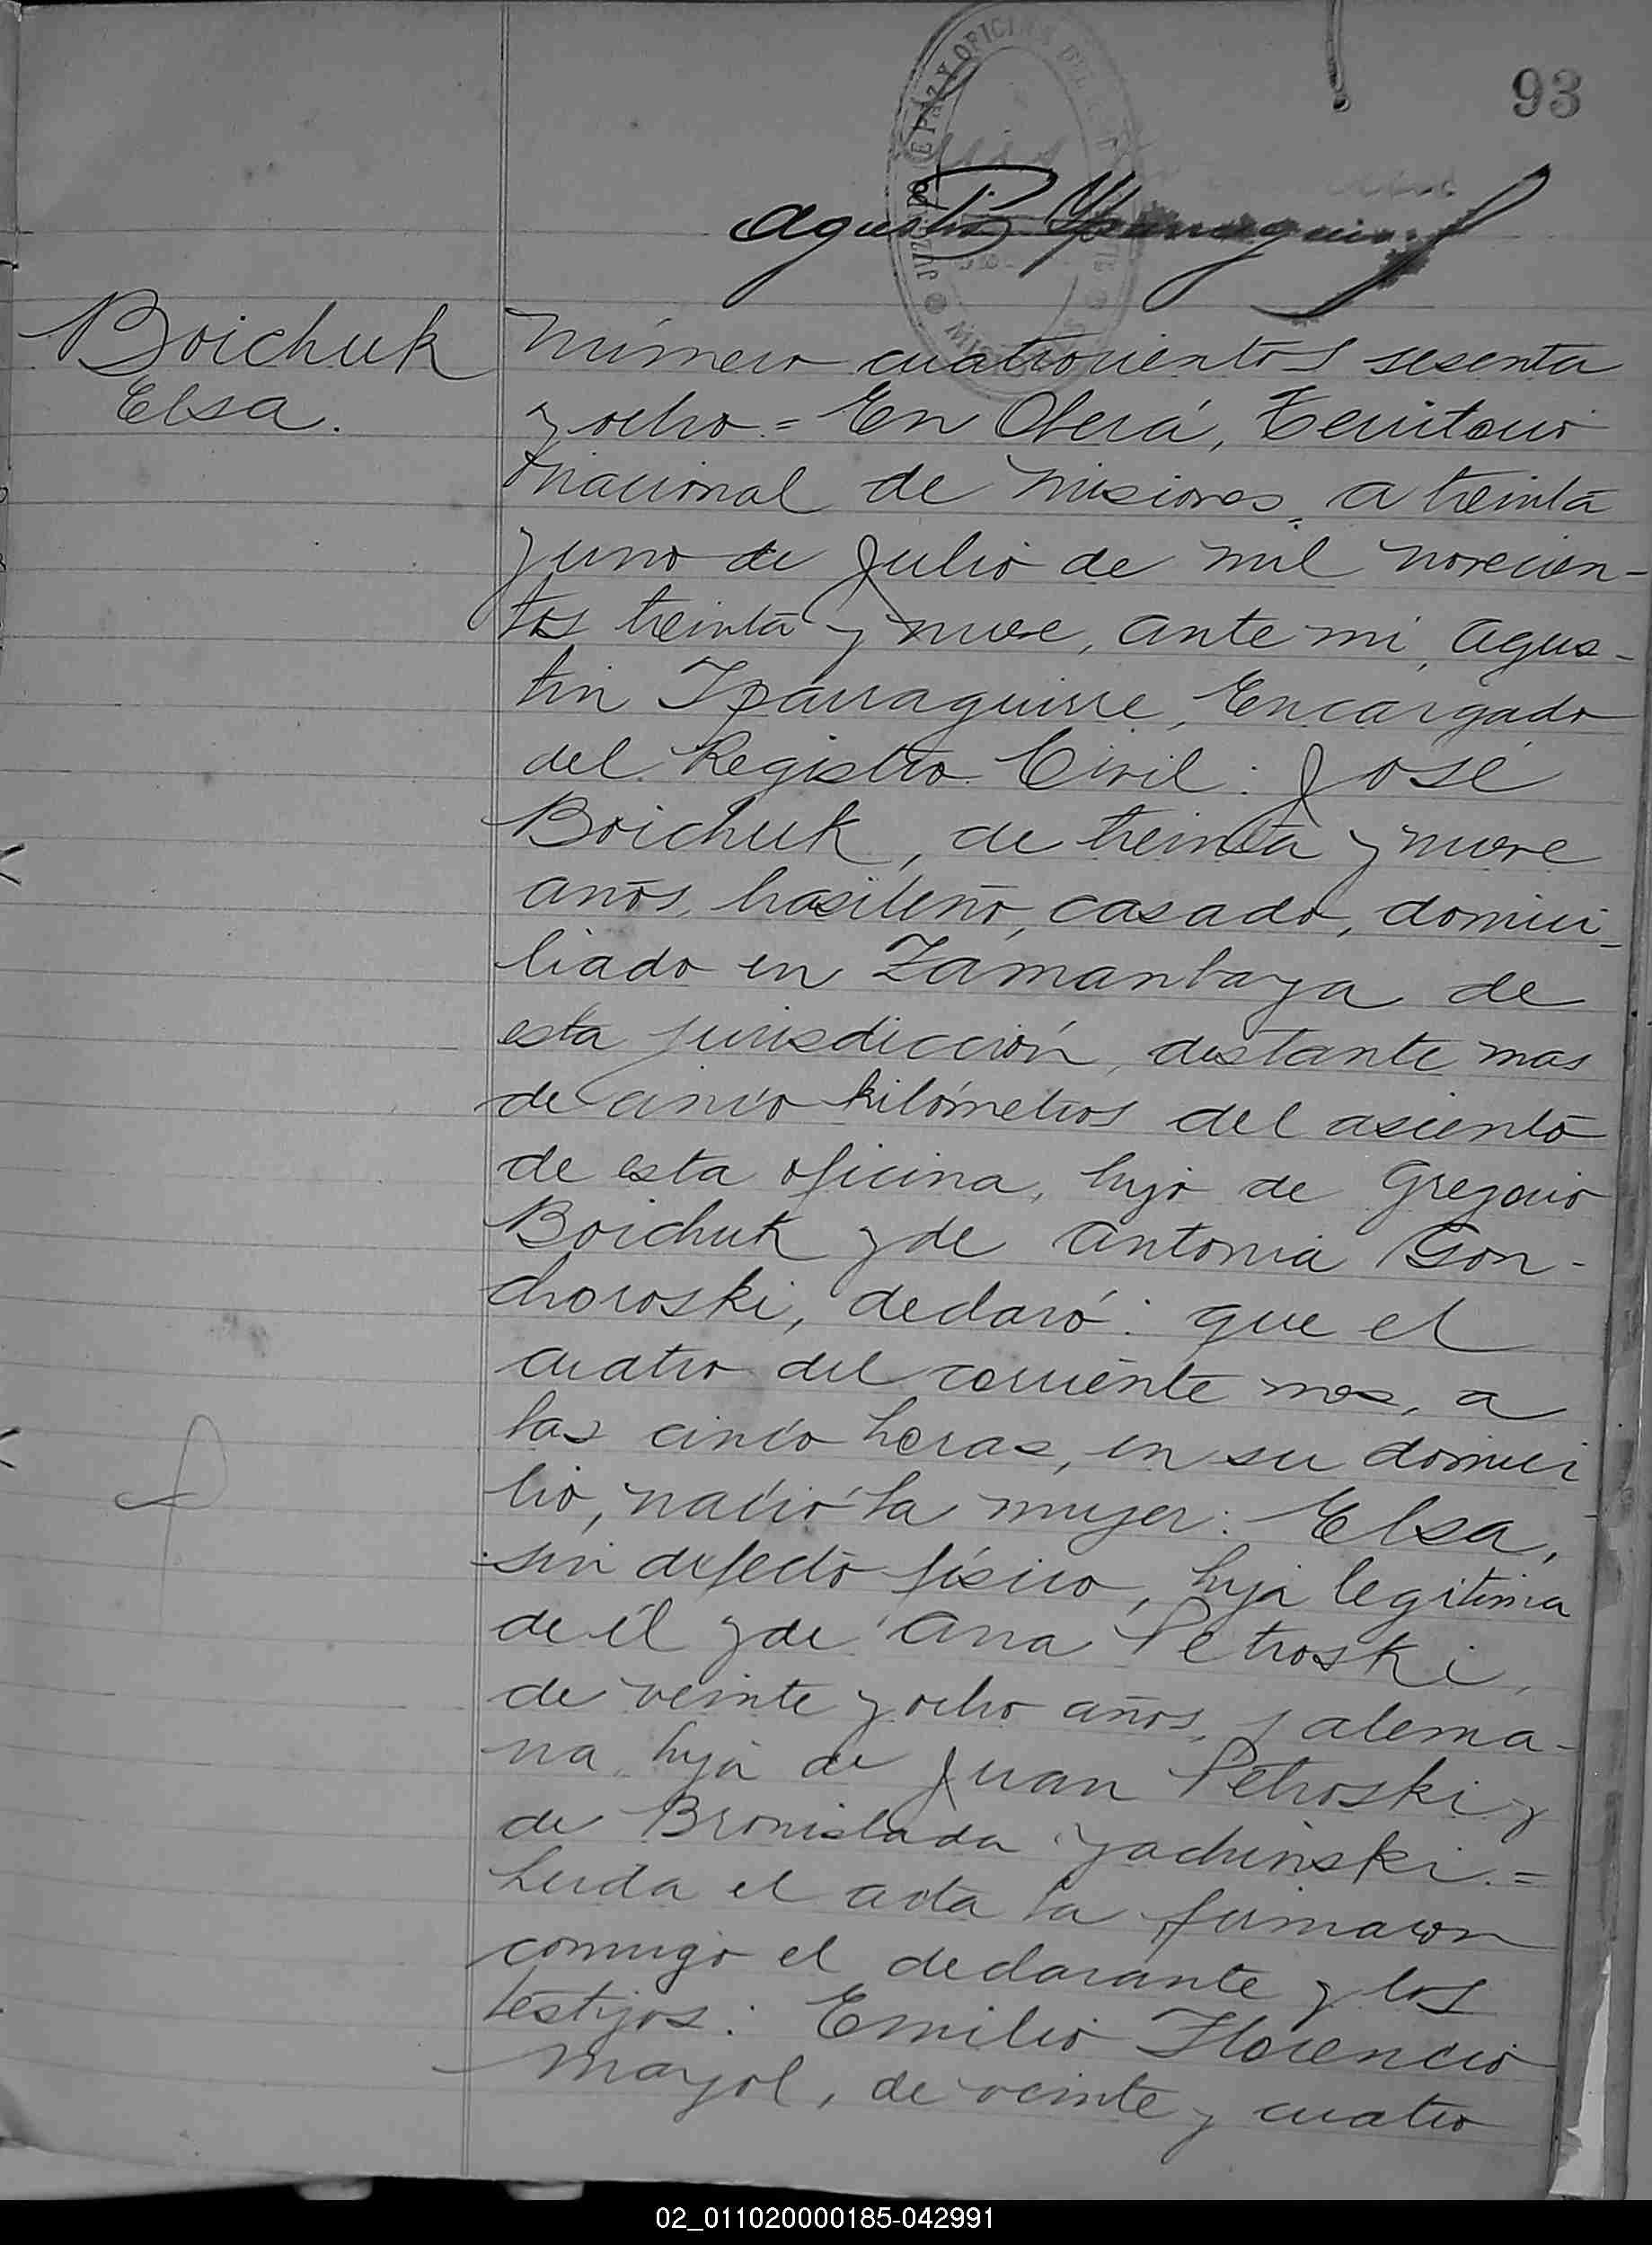 93
JUZGADO DE PAZ Y OFICINA DEL
Agustin Yparraguirre
Boichuk
Elsa.
Número cuatrocientos sesenta
y ocho = En Oberá, Territorio
Nacional de Misiones, a treinta
y uno de Julio de mil novecien-
tos treinta y nueve, ante mi, Agus-
tin Yparraguirre, Encargado
del Registro Civil: José
Boichuk, de treinta y nueve
años, brasileño, casado, domici-
liado en Zamanbaya de
esta jurisdicción, distante mas
de cinco kilómetros del asiento
de esta oficina, hijo de Gregorio
Boichuk y de Antonia Gon-
choroski, declaró: que el
cuatro del corriente mes, a
las cinco horas, en su domici
lio, nació la mujer: Elsa,
sin defecto físico, hija legitima
de él y de Ana Petroski,
de veinte y ocho años, alema-
na, hija de Juan Petroski y
de Bronislada Yachinski. =
Leida el acta la firmaron
conmigo el declarante y los
testigos: Emilio Florencio
Mayol, de veinte y cuatro
02_011020000185-042991